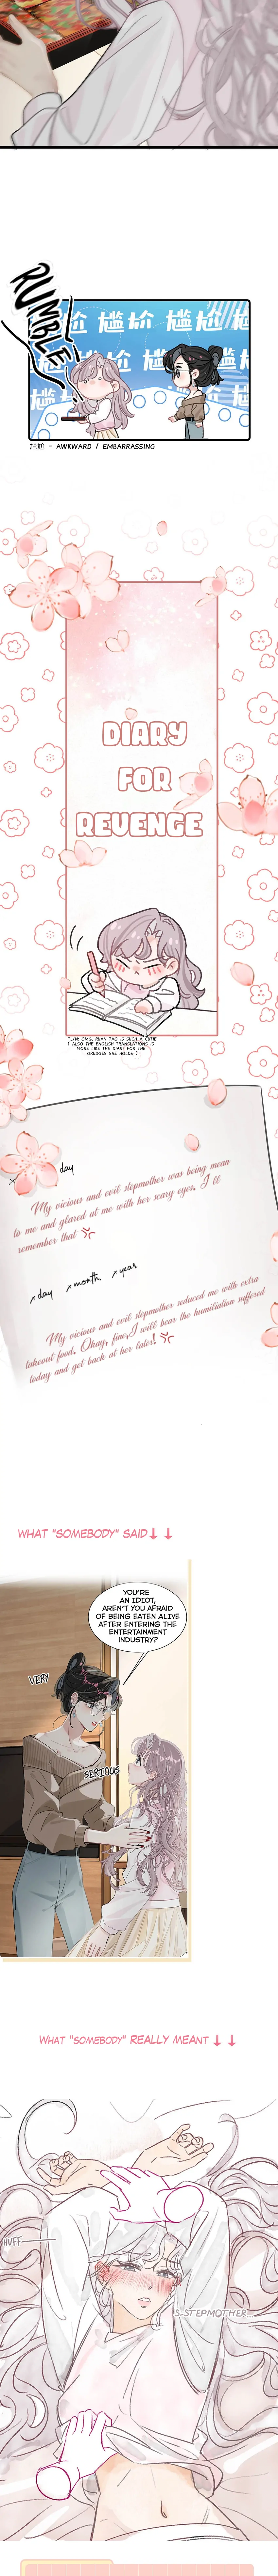 RUMBLE
尴尬 尴尬 尴尬
尴尬 = AWKWARD / EMBARRASSING
DIARY
FOR
REVENGE
TL/N: OMG, RUAN TAO IS SUCH A CUTIE
( ALSO THE ENGLISH TRANSLATIONS IS
MORE LIKE THE DIARY FOR THE
GRUDGES SHE HOLDS )
× day
My vicious and evil stepmother was being mean
to me and glared at me with her scary eyes. I'll
remember that
× day × month × year
My vicious and evil stepmother seduced me with extra
takeout food. Okay, fine, I will bear the humiliation suffered
today and get back at her later!
WHAT "SOMEBODY" SAID↓ ↓
YOU'RE
AN IDIOT,
AREN'T YOU AFRAID
OF BEING EATEN ALIVE
AFTER ENTERING THE
ENTERTAINMENT
INDUSTRY?
VERY
SERIOUS
WHAT "SOMEBODY" REALLY MEANT ↓ ↓
HUFF
S..STEPMOTHER...